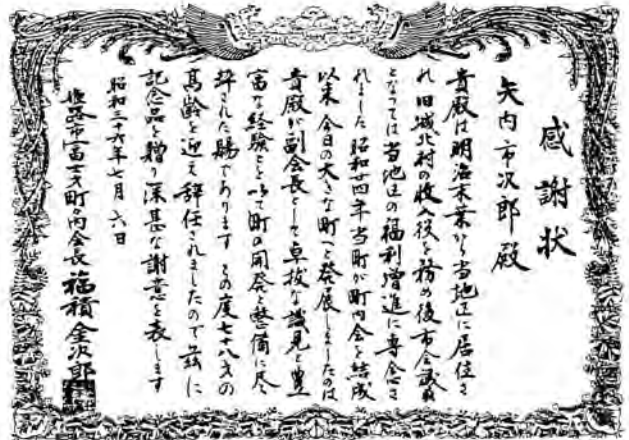 感謝状
矢内市次郎殿
貴殿は明治末葉から当地区に居住さ
れ旧城北村の収入役を務め後市会議員
となっては当地区の福利増進に専念さ
れました 昭和廿四年当町が町内会を結成
以来 今日の大きな町へと発展しましたのは
貴殿が副会長として卓抜な識見と豊
富な経験とを以て町の開発と整備に尽
粋された賜であります この度七十八才の
高齢を迎え辞任されましたので茲に
記念品を贈り深甚な謝意を表します
昭和三十六年七月六日
姫路市富士才町町内会長 福積金次郎